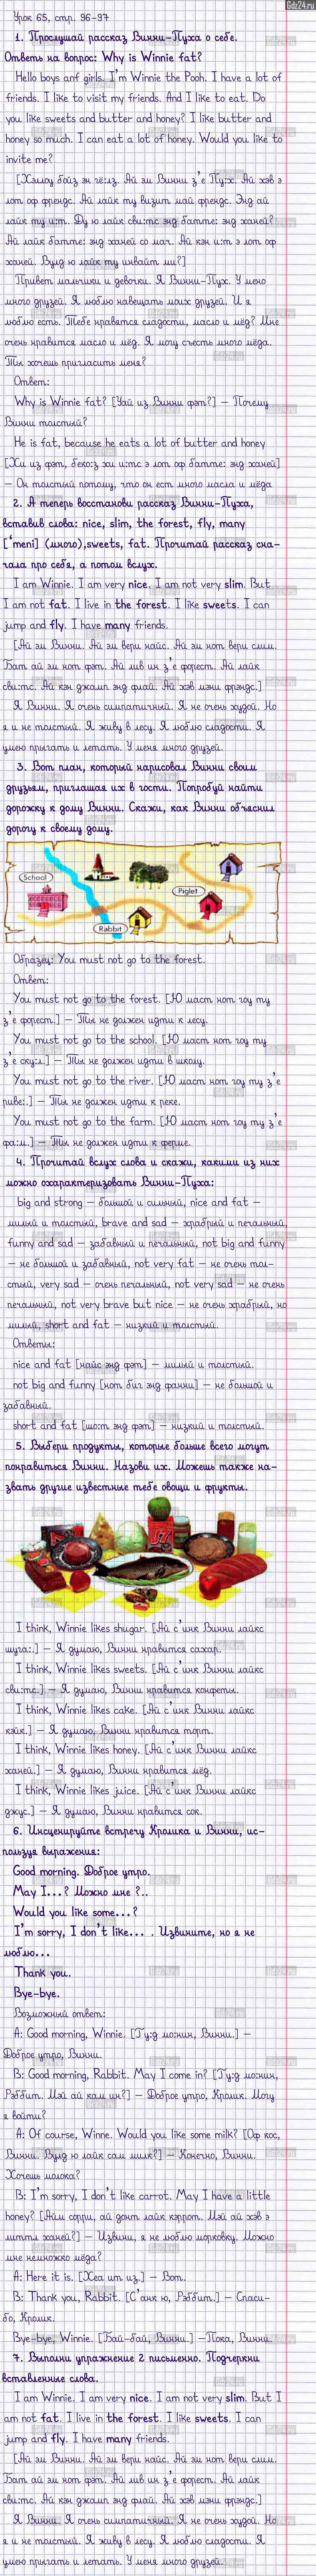 Gdz24.ru
Урок 65, стр. 96-97
1. Прослушай рассказ Винни-Пуха о себе.
Ответь на вопрос: Why is Winnie fat?
Hello boys anf girls. I'm Winnie the Pooh. I have a lot of
friends. I like to visit my friends. And I like to eat. Do
you like sweets and butter and honey? I like butter and
honey so much. I can eat a lot of honey. Would you like to
invite me?
[Хэлоу бойз эн гё:лз. Ай эм Винни з'е Пу:х. Ай хэв э
лот оф френдс. Ай лайк ту визит май френдс. Энд ай
лайк ту и:т. Ду ю лайк сви:тс энд батте: энд ханей?
Ай лайк батте: энд ханей со мач. Ай кэн и:т э лот оф
ханей. Вулд ю лайк ту инвайт ми?]
Привет мальчики и девочки. Я Винни-Пух. У меня
много друзей. Я люблю навещать моих друзей. И я
люблю есть. Тебе нравятся сладости, масло и мёд? Мне
очень нравится масло и мёд. Я могу съесть много мёда.
Ты хочешь пригласить меня?
Ответ:
Why is Winnie fat? [Уай из Винни фэт?] – Почему
Винни толстый?
He is fat, because he eats a lot of butter and honey
[Хи из фэт, бекс:з хи и:тс э лот оф батте: энд ханей]
– Он толстый потому, что он ест много масла и мёда
2. А теперь восстанови рассказ Винни-Пуха,
вставив слова: nice, slim, the forest, fly, many
['meni] (много),sweets, fat. Прочитай рассказ сна-
чала про себя, а потом вслух.
I am Winnie. I am very nice. I am not very slim. But
I am not fat. I live in the forest. I like sweets. I can
jump and fly. I have many friends.
[Ай эм Винни. Ай эм вери найс. Ай эм нот вери слим.
Бат ай эм нот фэт. Ай лив ин з'е форест. Ай лайк
сви:тс. Ай кэн джамп энд флай. Ай хэв мэни фрэндс.]
Я Винни. Я очень симпатичный. Я не очень худой. Но
я и не толстый. Я живу в лесу. Я люблю сладости. Я
умею прыгать и летать. У меня много друзей.
3. Вот план, который нарисовал Винни своим
друзьям, приглашая их в гости. Попробуй найти
дорожку к дому Винни. Скажи, как Винни объяснил
дорогу к своему дому.
School
Piglet
Rabbit
Образец: You must not go to the forest.
Ответ:
You must not go to the forest. [Ю маст нот гоу ту
з'е форест.] – Ты не должен идти к лесу.
You must not go to the school. [Ю маст нот гоу ту
з'е ску:л.] – Ты не должен идти в школу.
You must not go to the river. [Ю маст нот гоу ту з'е
риве:.] – Ты не должен идти к реке.
You must not go to the farm. [Ю маст нот гоу ту з'е
фа:м.] – Ты не должен идти к ферме.
4. Прочитай вслух слова и скажи, какими из них
можно охарактеризовать Винни-Пуха:
big and strong – большой и сильный, nice and fat –
милый и толстый, brave and sad – храбрый и печальный,
funny and sad – забавный и печальный, not big and funny
– не большой и забавный, not very fat – не очень тол-
стый, very sad – очень печальный, not very sad – не очень
печальный, not very brave but nice – не очень храбрый, но
милый, short and fat – низкий и толстый.
Ответы:
nice and fat [найс энд фэт] – милый и толстый.
not big and funny [нот биг энд фанни] – не большой и
забавный.
short and fat [шо:т энд фэт] – низкий и толстый.
5. Выбери продукты, которые больше всего могут
понравиться Винни. Назови их. Можешь также на-
звать другие известные тебе овощи и фрукты.
I think, Winnie likes shugar. [Ай с'инк Винни лайкс
шуга:.] – Я думаю, Винни нравится сахар.
I think, Winnie likes sweets. [Ай с'инк Винни лайкс
сви:тс.] – Я думаю, Винни нравится конфеты.
I think, Winnie likes cake. [Ай с'инк Винни лайкс
кэйк.] – Я думаю, Винни нравится торт.
I think, Winnie likes honey. [Ай с'инк Винни лайкс
ханей.] – Я думаю, Винни нравится мёд.
I think, Winnie likes juice. [Ай с'инк Винни лайкс
джус.] – Я думаю, Винни нравится сок.
6. Инсценируйте встречу Кролика и Винни, ис-
пользуя выражения:
Good morning. Доброе утро.
May I...? Можно мне ?..
Would you like some...?
I'm sorry, I don't like... . Извините, но я не
люблю...
Thank you.
Bye-bye.
Возможный ответ:
A: Good morning, Winnie. [Гу:д мо:нин, Винни.] –
Доброе утро, Винни.
B: Good morning, Rabbit. May I come in? [Гу:д мо:нин,
Рэббит. Мэй ай кам ин?] – Доброе утро, Кролик. Могу
я войти?
A: Of course, Winne. Would you like some milk? [Оф кос,
Винни. Вулд ю лайк сам милк?] – Конечно, Винни.
Хочешь молока?
B: I'm sorry, I don't like carrot. May I have a little
honey? [Айм сорри, ай донт лайк кэррот. Мэй ай хэв э
литтл ханей?] – Извини, я не люблю морковку. Можно
мне немножко мёда?
A: Here it is. [Хеа ит из.] – Вот.
B: Thank you, Rabbit. [С'анк ю, Рэббит.] – Спаси-
бо, Кролик.
Bye-bye, Winnie. [Бай-бай, Винни.] –Пока, Винни.
7. Выполни упражнение 2 письменно. Подчеркни
вставленные слова.
I am Winnie. I am very nice. I am not very slim. But I
am not fat. I live in the forest. I like sweets. I can
jump and fly. I have many friends.
[Ай эм Винни. Ай эм вери найс. Ай эм нот вери слим.
Бат ай эм нот фэт. Ай лив ин з'е форест. Ай лайк
сви:тс. Ай кэн джамп энд флай. Ай хэв мэни фрэндс.]
Я Винни. Я очень симпатичный. Я не очень худой. Но
я и не толстый. Я живу в лесу. Я люблю сладости. Я
умею прыгать и летать. У меня много друзей.